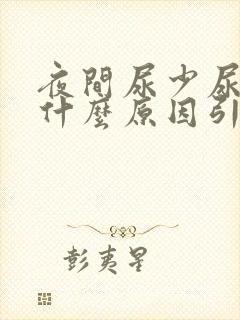 夜間尿少尿
什麼原因引
彭夷星